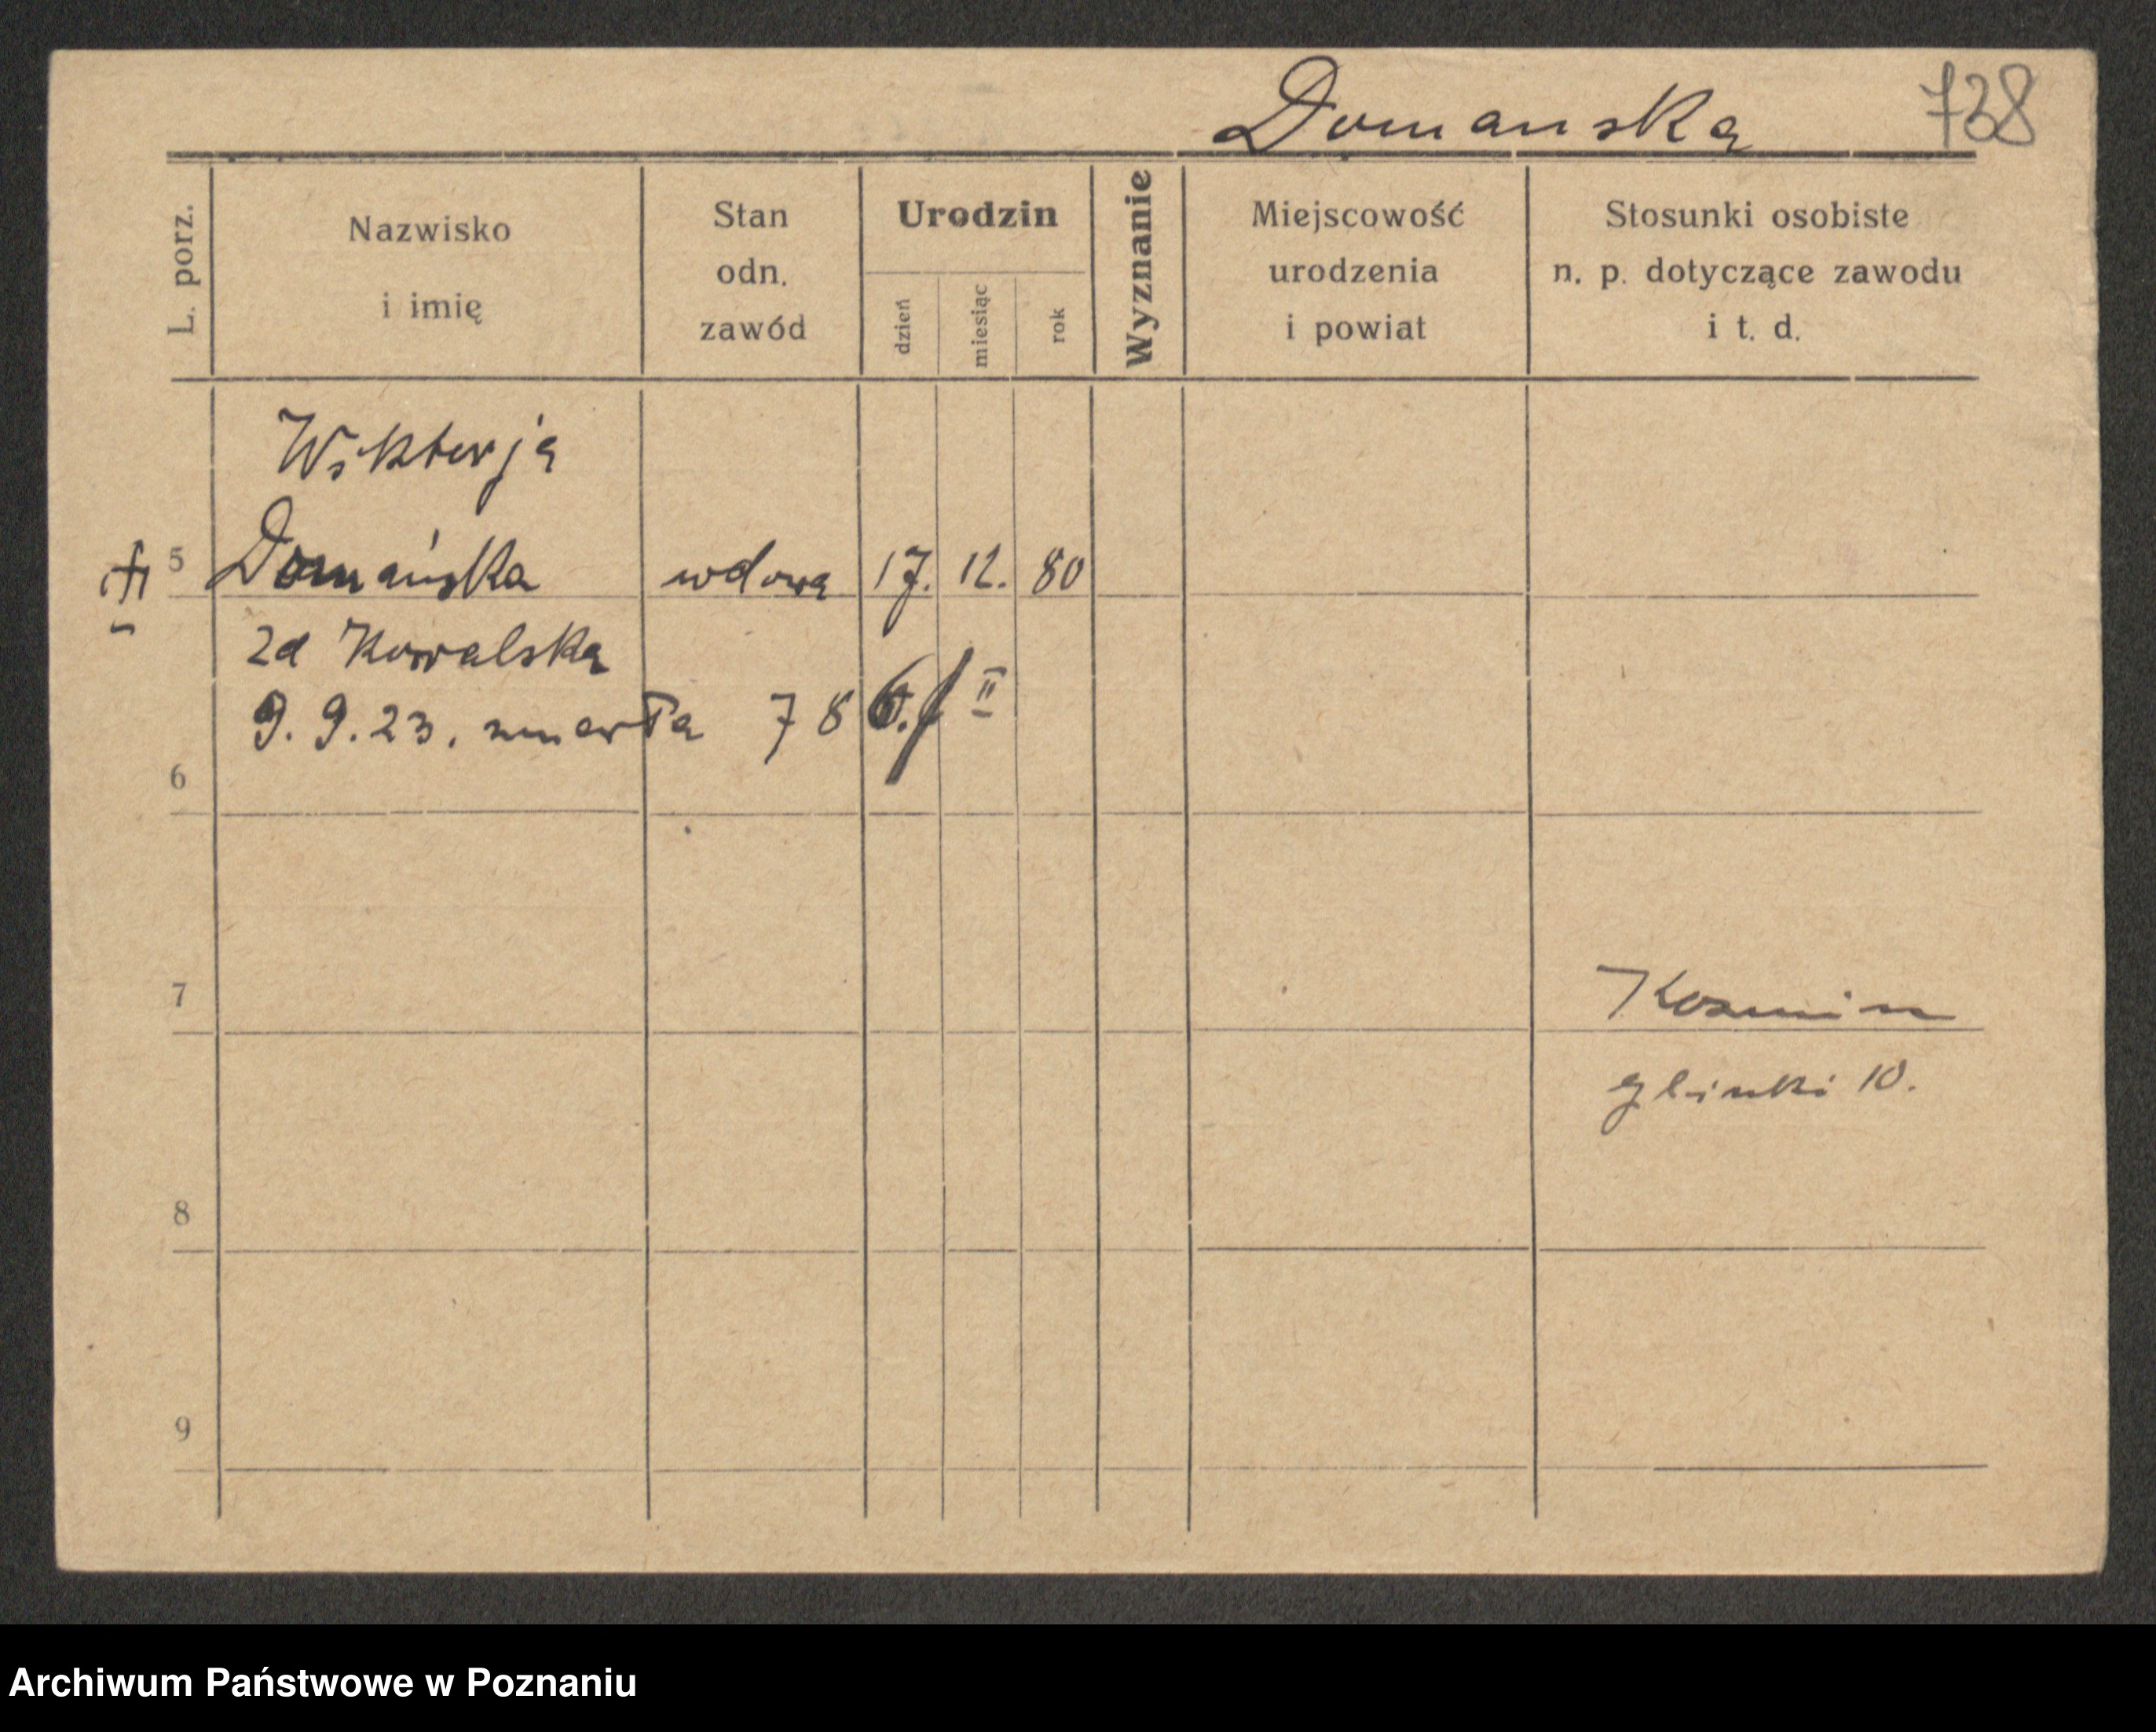 Domanska 738
L. porz.
Nazwisko
i imię
Stan
odn.
zawód
Urodzin
dzień
miesiąc
rok
Wyznanie
Miejscowość
urodzenia
i powiat
Stosunki osobiste
n. p. dotyczące zawodu
i t. d.
Wiktorja
5 Domańska wdowa 17. 12. 80
zd Kowalska
9. 9. 23. zmarła 786. II
6
7 Kosmin
glinki 10.
8
9
Archiwum Państwowe w Poznaniu